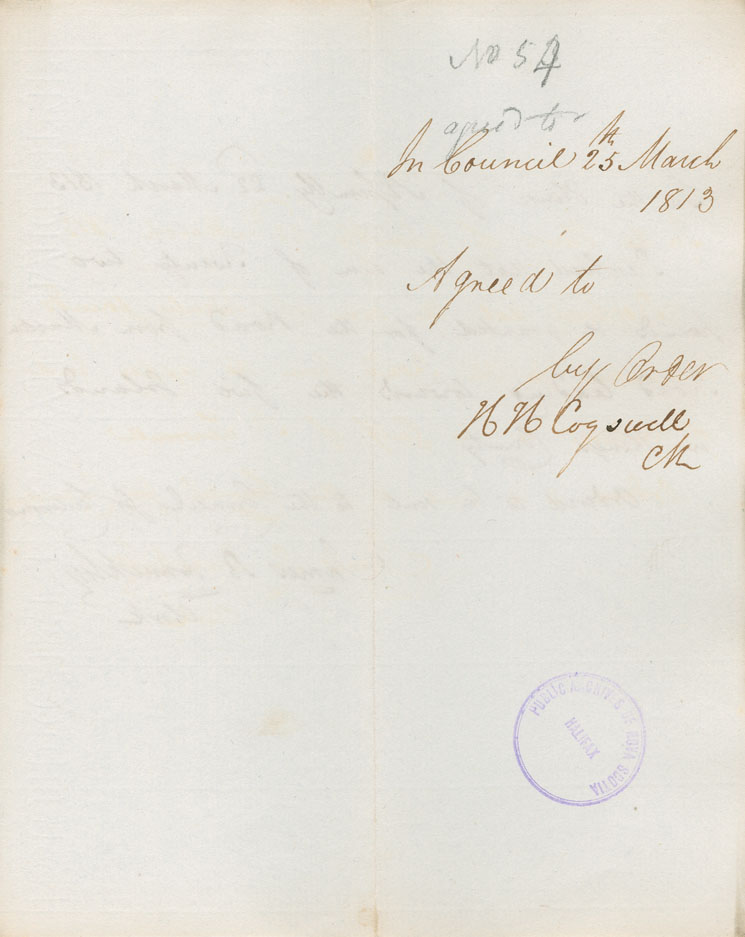 No 54
agreed to
In Council 25th March
1813
Agreed to
by Order
H H Cogswell
Clk
PUBLIC ARCHIVES OF NOVA SCOTIA
HALIFAX